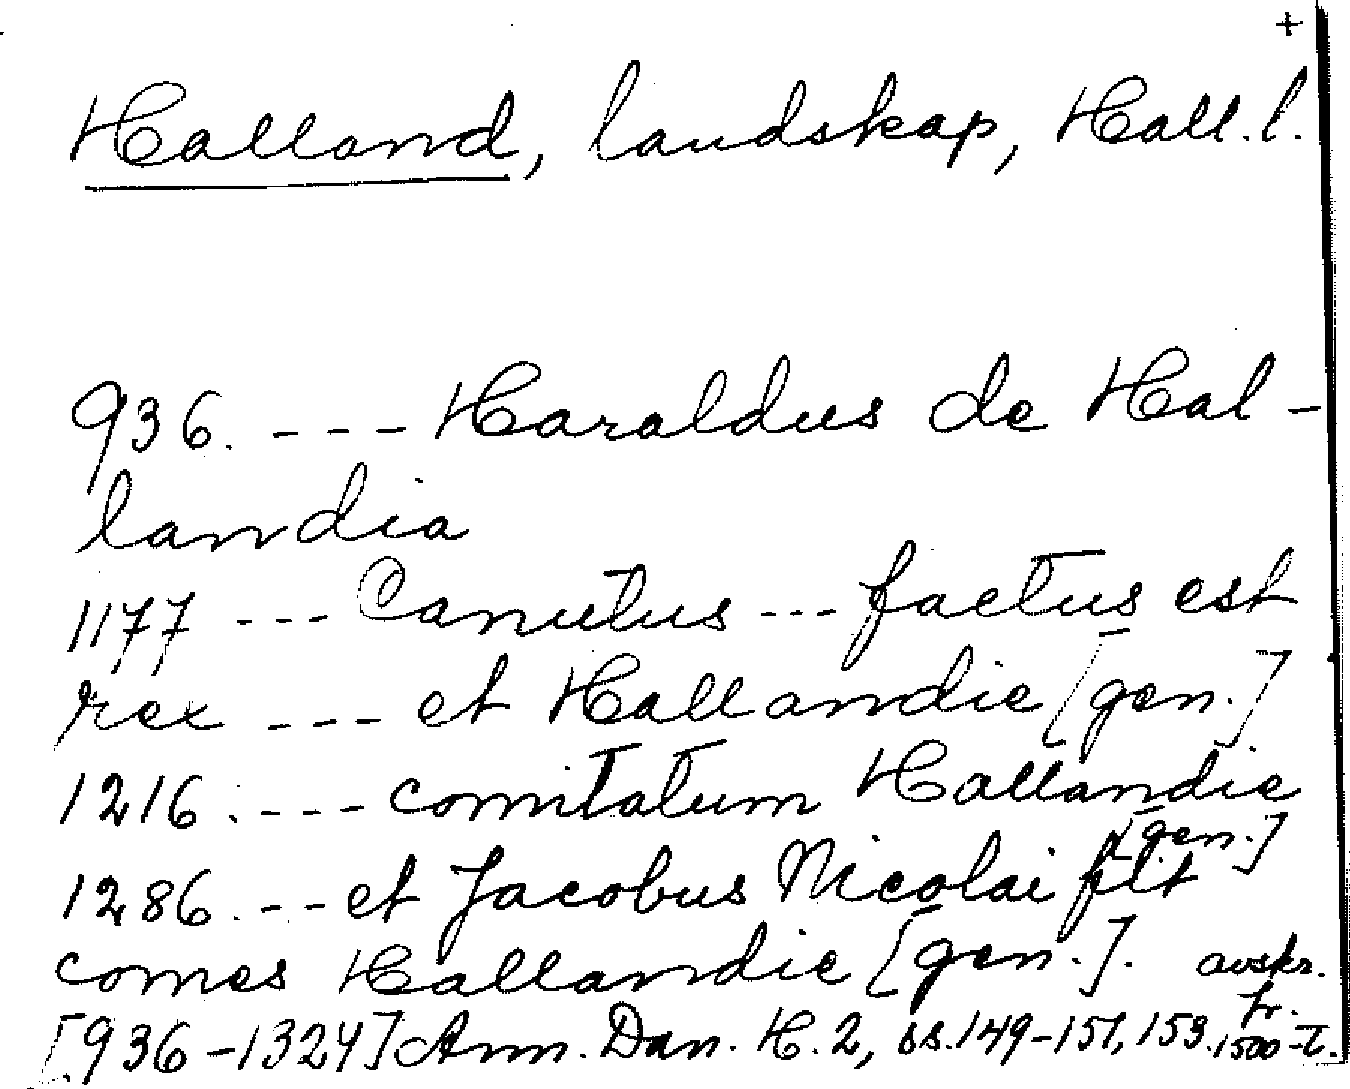 +
Halland, landskap, Hall. l.
936. --- Haraldus de Hal-
landia
1177 --- Canutus --- factus est
rex --- et Hallandie [gen.]
1216. --- comitatum Hallandie
[gen.]
1286. --- et Jacobus Nicolai fit
comes Hallandie [gen.]. avskr.
fr.
[936-1324] Ann. Dan. H. 2, ss. 149-151, 153. 1500-t.